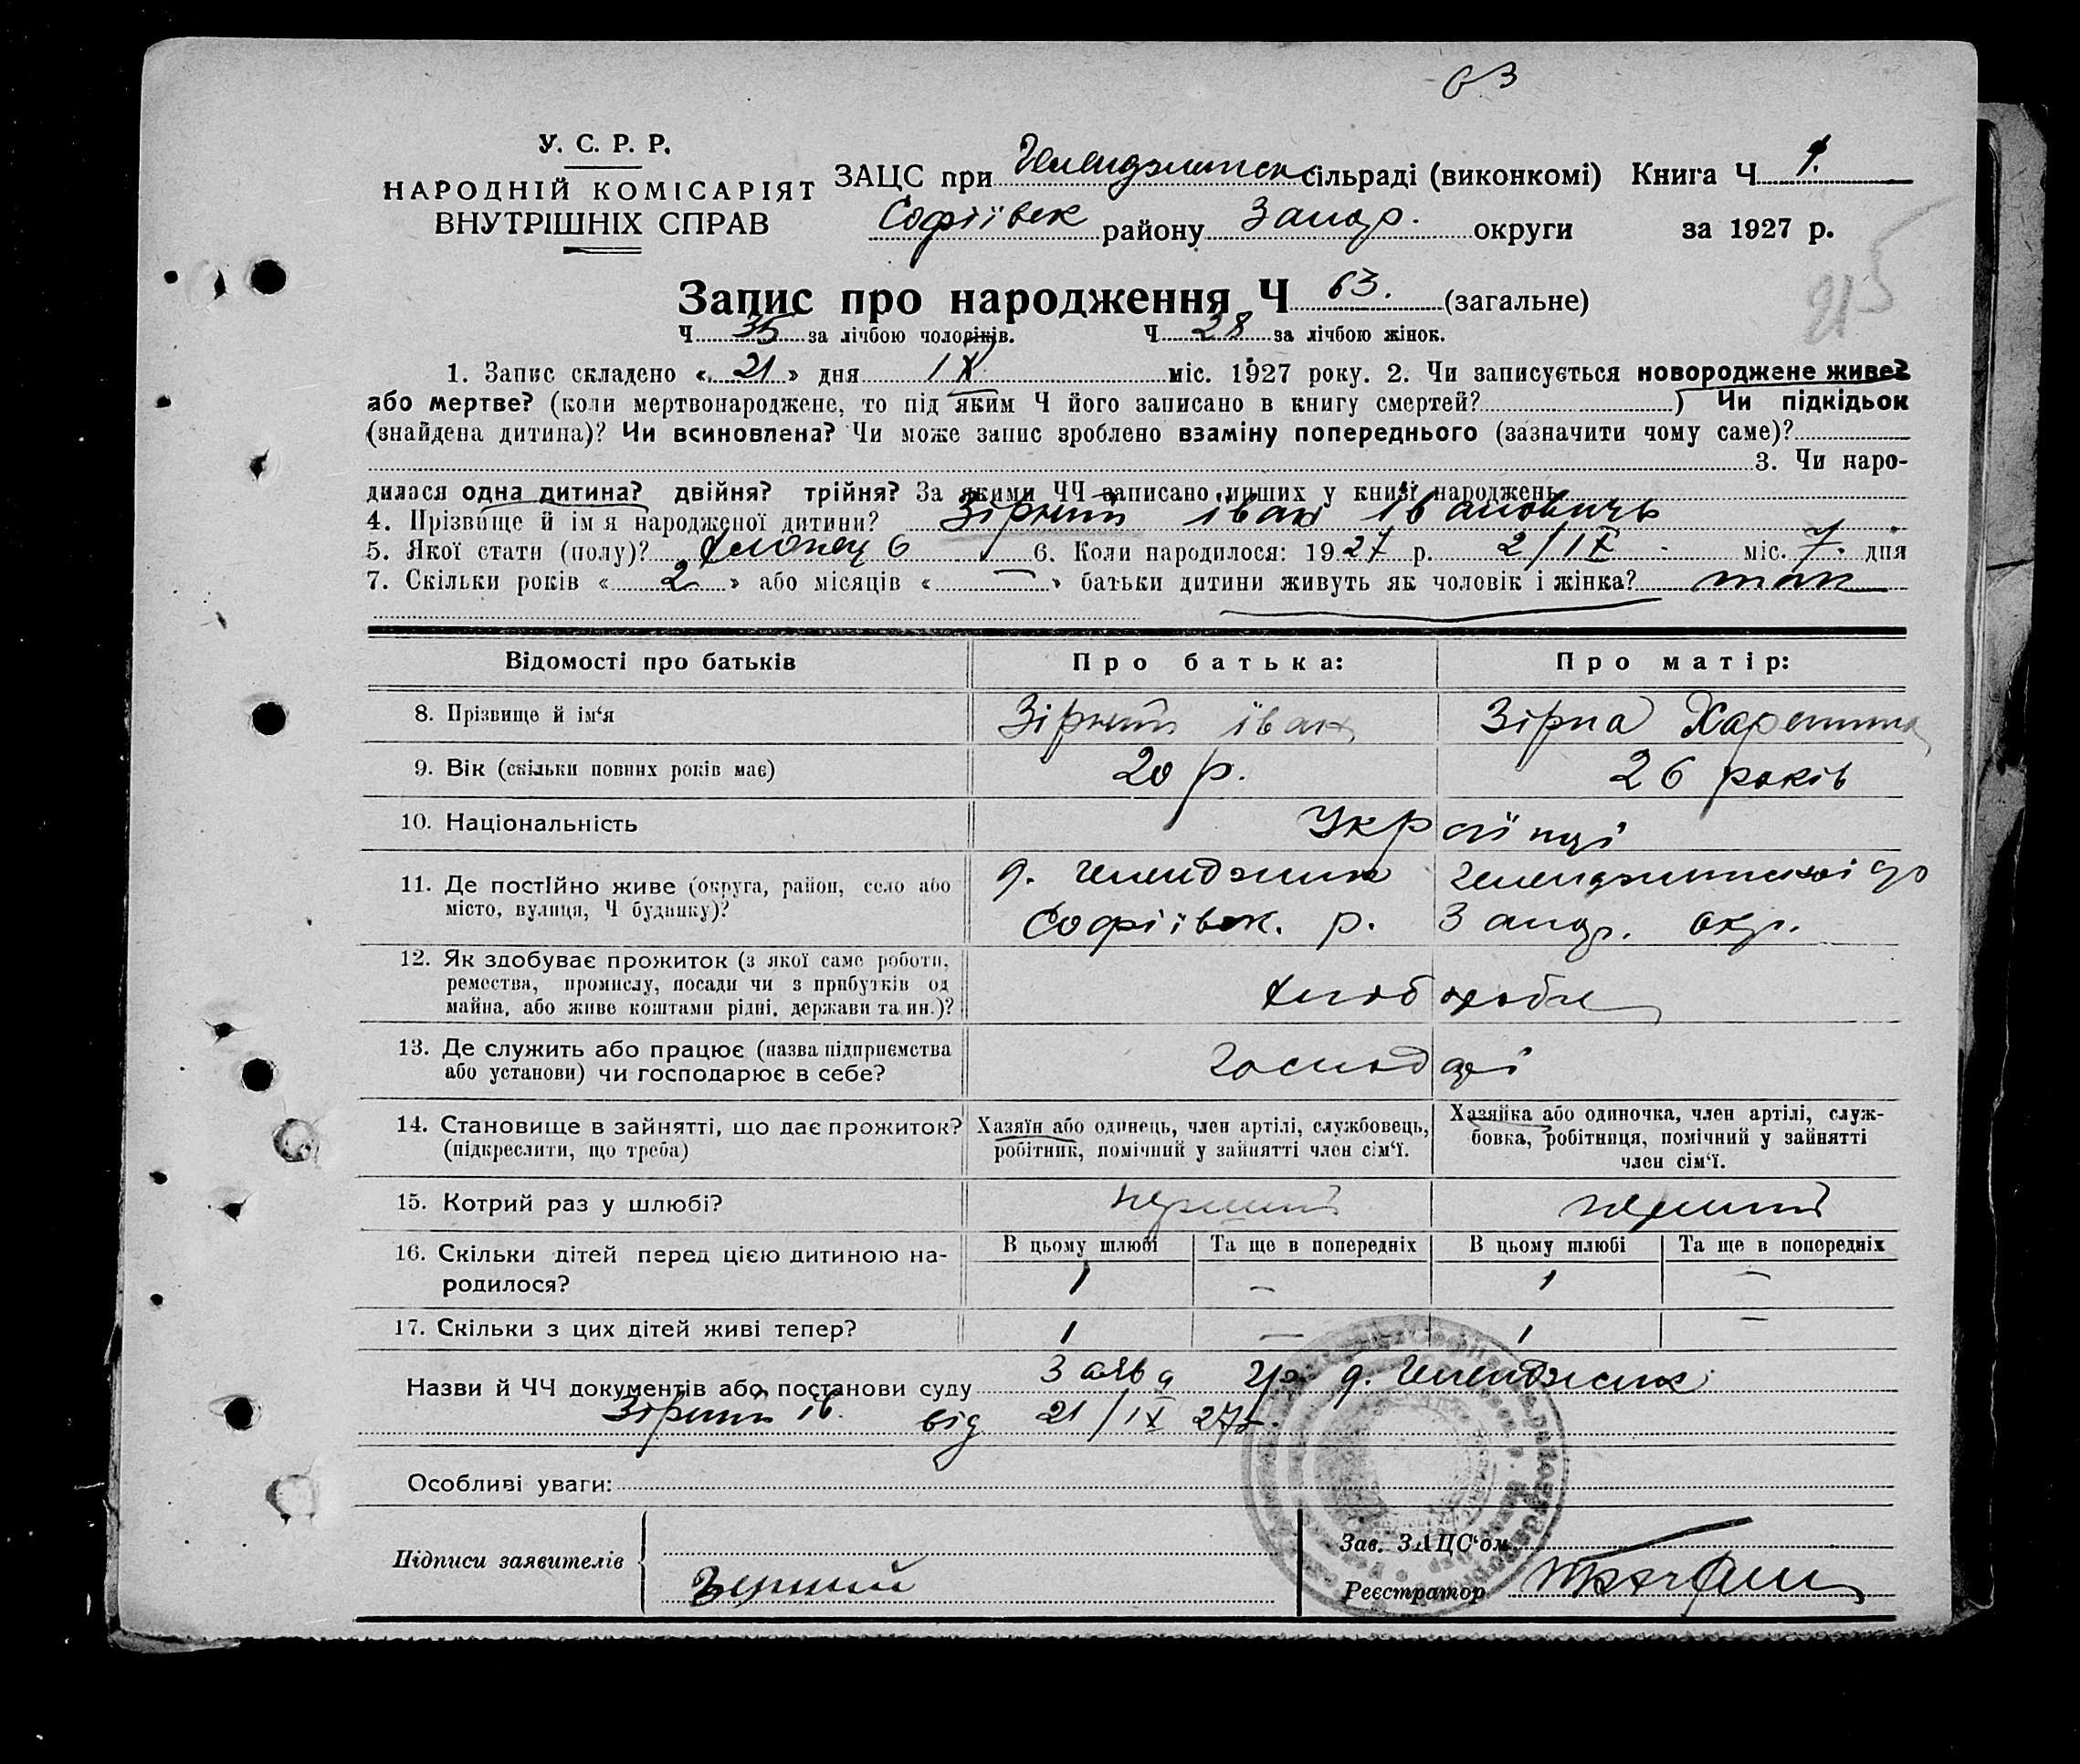 63
У. С. Р. Р.
НАРОДНІЙ КОМІСАРІЯТ
ВНУТРІШНІХ СПРАВ
ЗАЦС при сільраді (виконкомі) Книга Ч 1.
Софіївськ району Запор. округи за 1927 р.
215
Запис про народження Ч 63. (загальне)
Ч 35 за лічбою чоловіків. Ч 28 за лічбою жінок.
1. Запис складено « 21 » дня IX міс. 1927 року. 2. Чи записується новороджене живе?
або мертве? (коли мертвонароджене, то під яким Ч його записано в книгу смертей? ) Чи підкідьок
(знайдена дитина)? Чи всиновлена? Чи може запис зроблено взаміну попереднього (зазначити чому саме)?
3. Чи наро-
дилася одна дитина? двійня? трійня? За якими ЧЧ записано инших у книзі народжень
4. Прізвище й ім'я народженої дитини? Зірний Іван Івановичь
5. Якої стати (полу)? хлопець 6. Коли народилося: 1927 р. 2/IX міс. 7. дня
7. Скільки років « 2 » або місяців « — » батьки дитини живуть як чоловік і жінка? так
Відомості про батьків Про батька: Про матір:
8. Прізвище й ім'я Зірний Іван Зірна
9. Вік (скільки повних років має) 20 р. 26 років
10. Національність Українці
11. Де постійно живе (округа, район, село або
місто, вулиця, Ч будинку)?
Софіївськ. р. Запор. окр.
12. Як здобуває прожиток (з якої саме роботи,
ремества, промислу, посади чи з прибутків од
майна, або живе коштами рідні, держави та ин.)? хлібороби
13. Де служить або працює (назва підприємства
або установи) чи господарює в себе? Господарі
14. Становище в зайнятті, що дає прожиток? (підкреслити, що треба)
Хазяїн або одинець, член артілі, службовець,
робітник, помічний у зайнятті член сім'ї.
Хазяйка або одиночка, член артілі, служ-
бовка, робітниця, помічний у зайнятті
член сім'ї.
15. Котрий раз у шлюбі? перший перший
16. Скільки дітей перед цією дитиною на-
родилося?
В цьому шлюбі Та ще в попередніх В цьому шлюбі Та ще в попередніх
1 — 1 —
17. Скільки з цих дітей живі тепер? 1 — 1 —
Назви й ЧЧ документів або постанови суду Заява гр.
Зірний Ів. від 21/IX 27р.
Особливі уваги:
Підписи заявителів
Зав. ЗАЦС'ом
Реєстратор